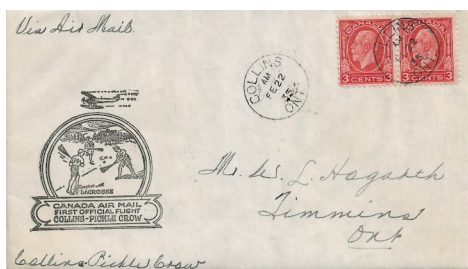 Via Air Mail
CANADA
3 CENTS 3
CANADA
3 CENTS 3
COLLINS
AM
FE 22
35
ONT
LACROSSE
CANADA AIR MAIL
FIRST OFFICIAL FLIGHT
COLLINS-PICKLE CROW
Mr. W. L. Hogarth
Timmins
Ont
Collins-Pickle Crow